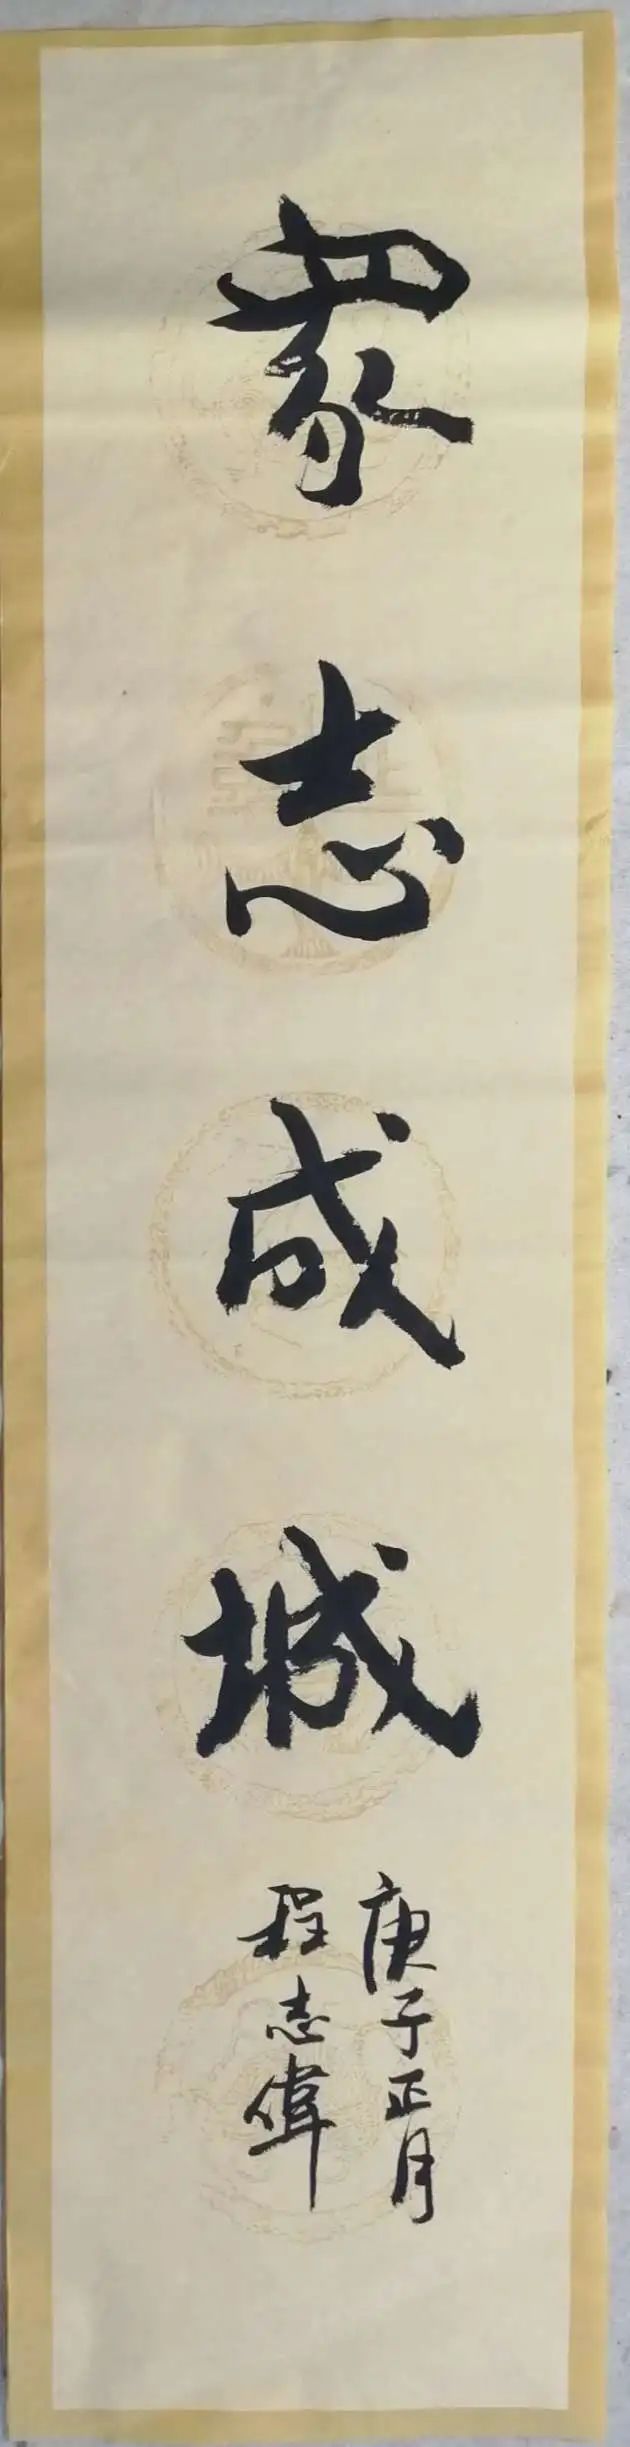 眾志成城
庚子正月
程志偉